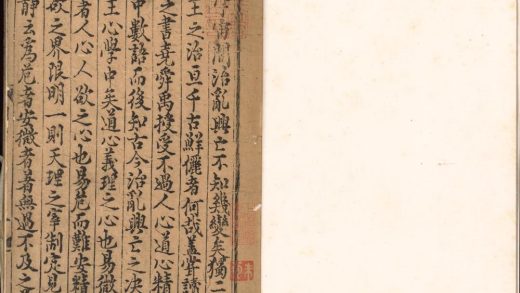 宵間治亂興亡不知幾變矣獨二
王之治亘千古鮮儷者何哉蓋嘗讀
之書堯舜禹授受不過人心道心精
中數語而後知古今治亂興亡之決
王心學中矣道心義理之心也易微
者人心人欲之心也易危而難安精
欲之界限明一則天理之宰制定見
靜云爲危者安微者著無過不及之